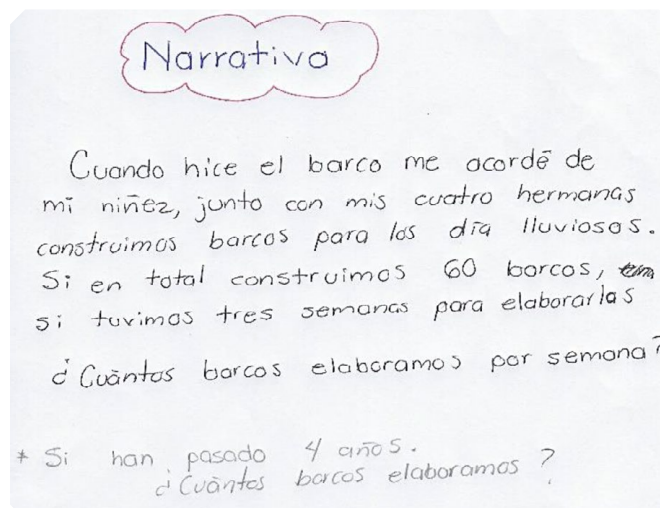 Narrativa
Cuando hice el barco me acordé de
mi niñez, junto con mis cuatro hermanas
construimos barcos para los día lluviosos.
Si en total construimos 60 barcos,
si tuvimos tres semanas para elaborarlas
¿Cuántos barcos elaboramos por semana?
* Si han pasado 4 años.
¿Cuántos barcos elaboramos?